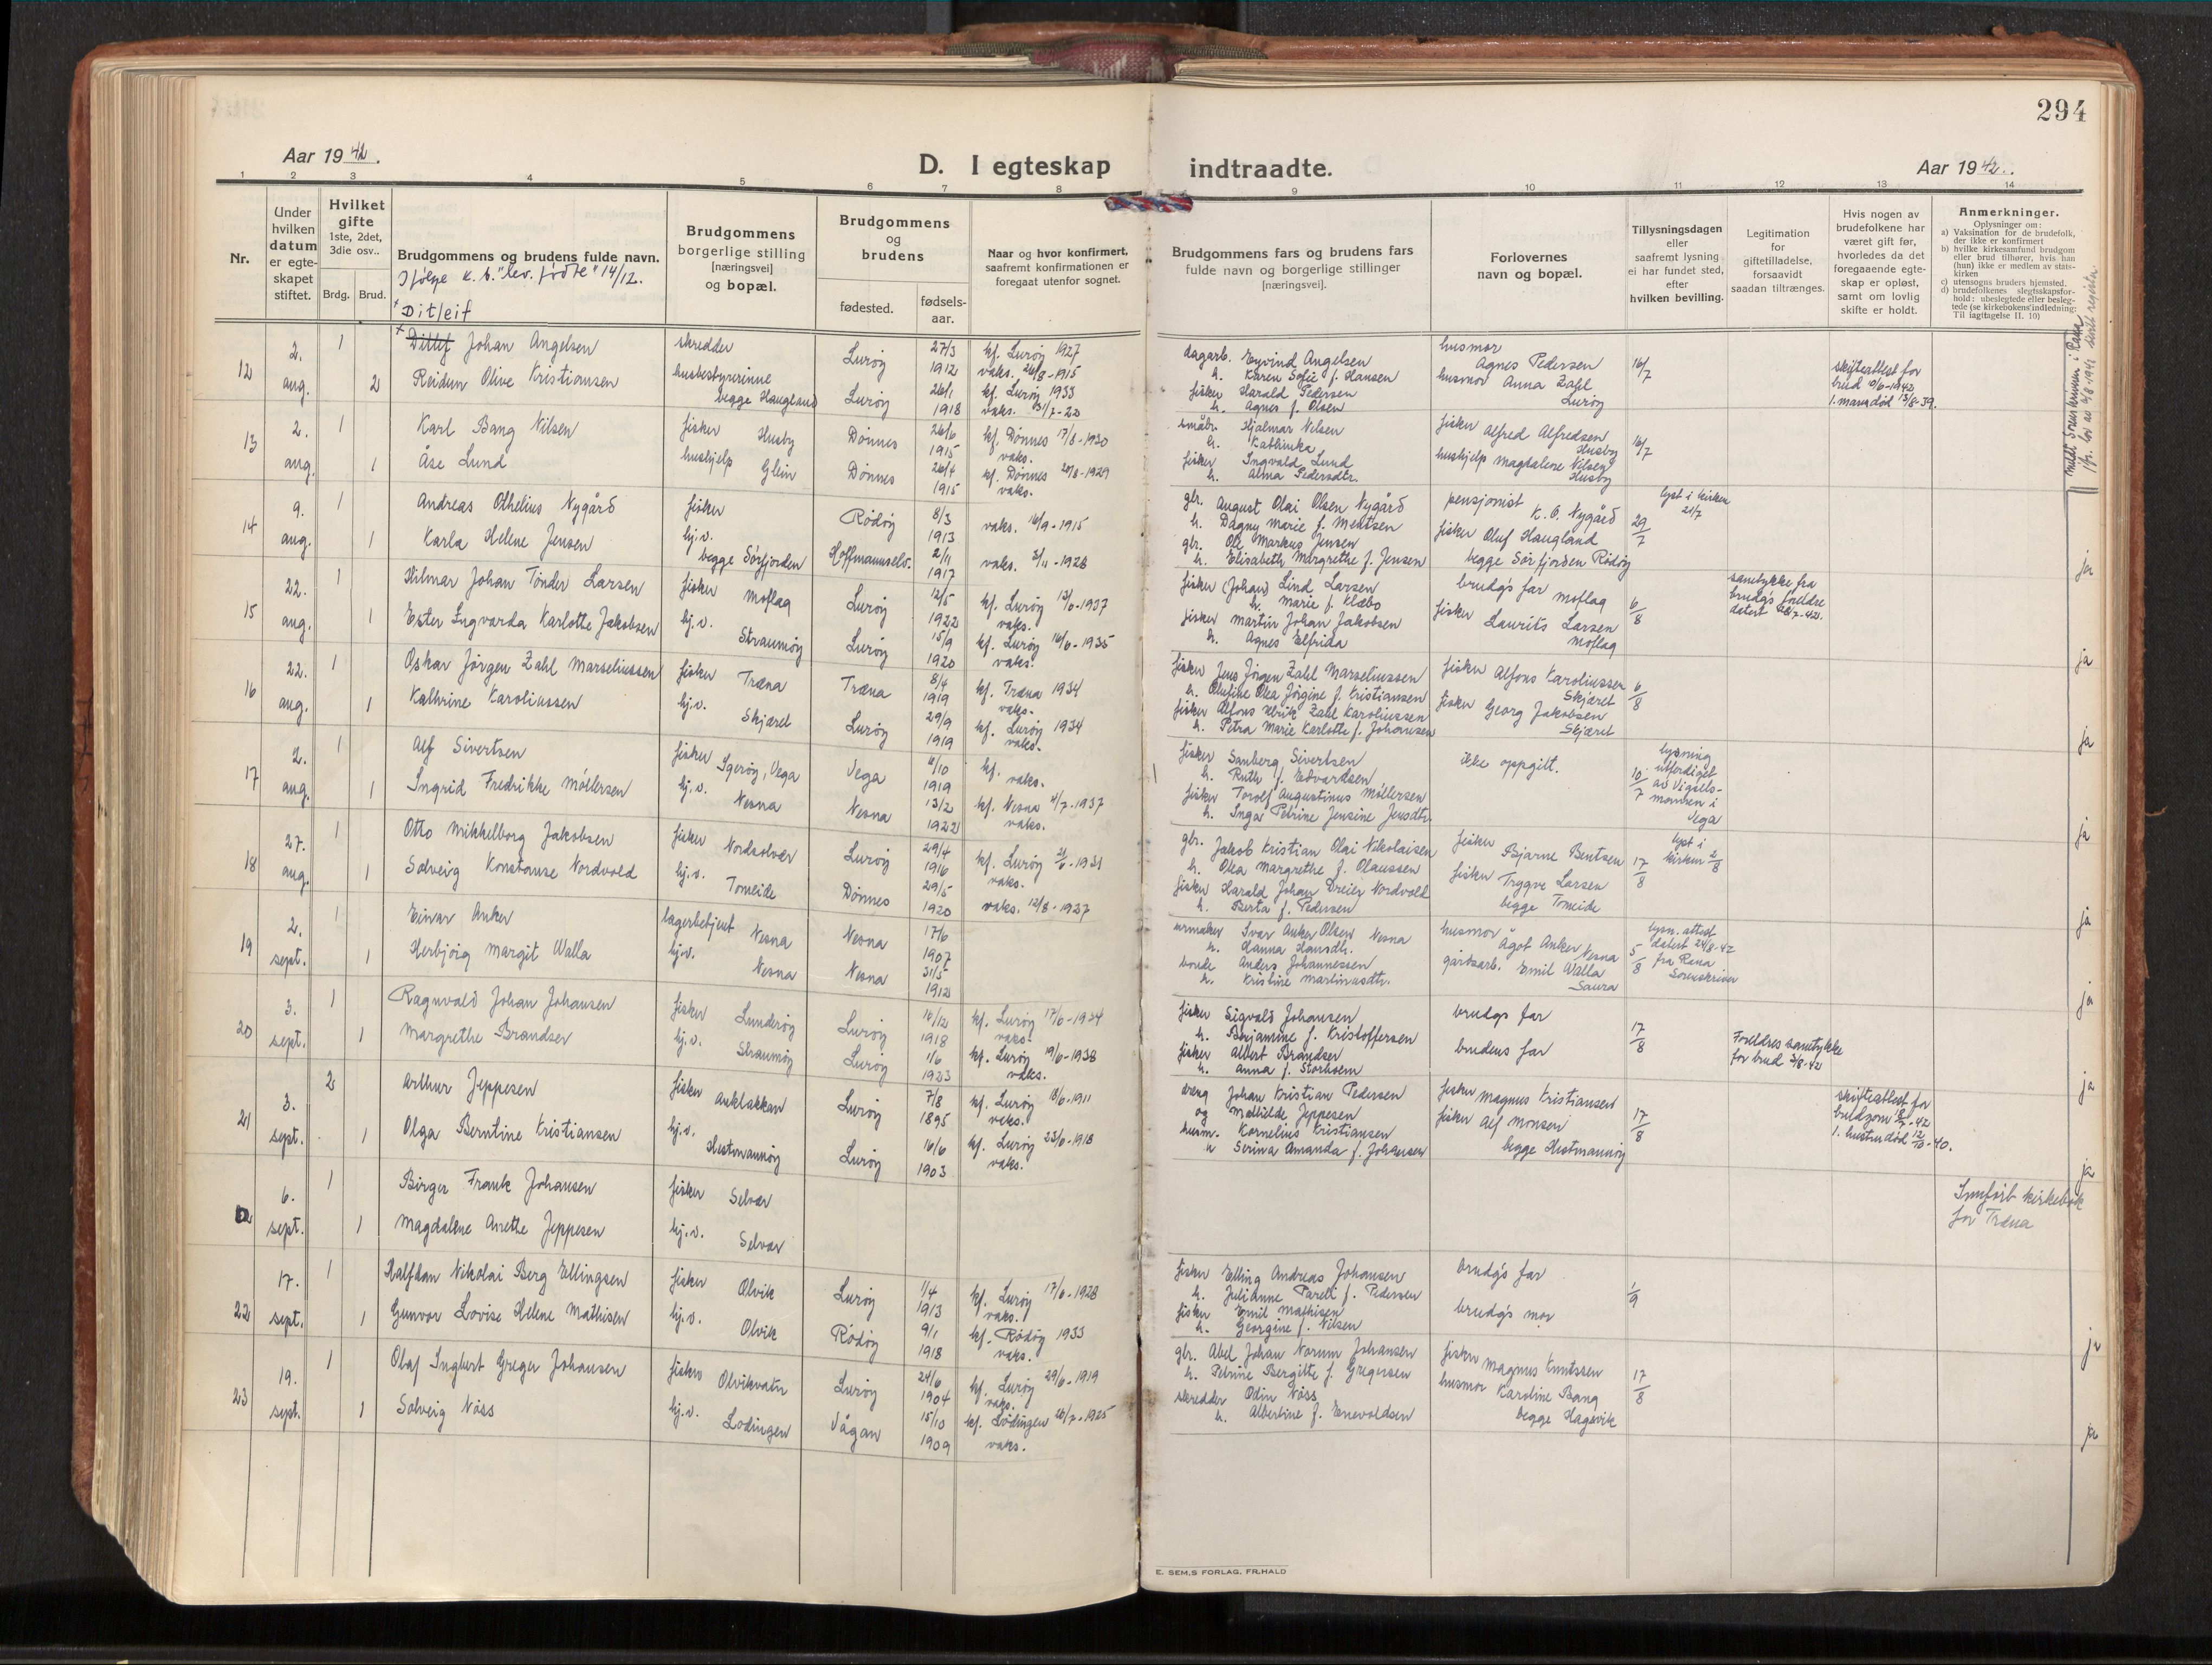 294
Aar 1942.
D. I egteskap indtraadte.
Aar 1942.
1 2 3 4 5 6 7 8 9 10 11 12 13 14
Nr.
Under hvilken datum er egte-skapet stiftet.
Hvilket gifte 1ste, 2det, 3die osv..
Brdg. Brud.
Brudgommens og brudens fulde navn.
Ifølge k.b. "lev. fødte" 14/12.
x Ditleif
Brudgommens borgerlige stilling [næringsvei] og bopæl.
Brudgommens og brudens
fødested. fødsels-aar.
Naar og hvor konfirmert, saafremt konfirmationen er foregaat utenfor sognet.
Brudgommens fars og brudens fars fulde navn og borgerlige stillinger [næringsvei].
Forlovernes navn og bopæl.
Tillysningsdagen eller saafremt lysning ei har fundet sted, efter hvilken bevilling.
Legitimation for giftetilladelse, forsaavidt saadan tiltrænges.
Hvis nogen av brudefolkene har været gift før, hvorledes da det foregaaende egte-skap er opløst, samt om lovlig skifte er holdt.
Anmerkninger.
Oplysninger om:
a) Vaksination for de brudefolk, der ikke er konfirmert
b) hvilke kirkesamfund brudgom eller brud tilhører, hvis han (hun) ikke er medlem av stats-kirken
c) utensogns bruders hjemsted.
d) brudefolkenes slegtsskapsfor-hold: ubeslegtede eller besleg-tede (se kirkebokens indledning: Til iagttagelse II. 10)
12 2. aug. 1 x Ditlef Johan Angelsen skredder Lurøy 27/3 1912 kf. Lurøy 1927 vaks. 26/8-1915
2 Reidun Olive Kristiansen husbestyrerinne begge Haugland Lurøy 26/1 1918 kf. Lurøy 1933 vaks. 31/7-20
dagarb. Eyvind Angelsen
h. Karen Sofie f. Hansen
fisker Harald Pedersen
h. Agnes f. Olsen
husmor Agnes Pedersen
husmor Anna Zahl Lurøy
16/7
skifteattest for brud 10/6-1942
1. mann død 13/8-39.
13 2. aug. 1 Karl Bang Nilsen fisker Husby Dønnes 26/6 1915 kf. Dønnes 17/8-1930 vaks.
1 Åse Lund hushjelp Glein Dønnes 26/4 1915 kf. Dønnes 20/8-1929 vaks.
småbr. Hjalmar Nilsen
h. Kathinka
fisker Ingvald Lund
h. Alma Pedersdtr.
fisker Alfred Alfredsen Husby
hushjelp Magdalene Nilsen Husby
16/7
14 9. aug. 1 Andreas Othelius Nygård fisker Rødøy 8/3 1913 vaks. 16/9-1915
1 Karla Helene Jensen hj.v. begge Sørfjorden Hoffmannselv. 2/11 1917 vaks. 3/11-1928
gbr. August Olai Olsen Nygård
h. Dagny Marie f. Mentsen
gbr. Ole Markus Jensen
h. Elisabeth Margrethe f. Jensen
pensjonist K.O. Nygård
fisker Oluf Haugland
begge Sørfjorden Rødøy
lyst i kirken 21/7
29/7
ja
15 22. aug. 1 Hilmar Johan Tønder Larsen fisker Moflag Lurøy 12/5 1922 kf. Lurøy 13/6-1937 vaks.
1 Ester Ingvarda Karlotte Jakobsen hj.v. Straumøy Lurøy 15/9 1920 kf. Lurøy 16/6-1935 vaks.
fisker (Johan) Lind Larsen
h. Marie f. Klæbo
fisker Martin Johan Jakobsen
h. Agnes Elfrida
brudg's far Moflag
fisker Laurits Larsen Moflag
6/8
samtykke fra brudg's foreldre datert 28/7-42.
ja
16 22. aug. 1 Oskar Jørgen Zahl Marseliussen fisker Træna Træna 8/4 1919 kf. Træna 1934 vaks.
1 Kathrine Karoliussen hj.v. Skjæret Lurøy 29/9 1919 kf. Lurøy 1934 vaks.
fisker Jens Jörgen Zahl Marseliussen
h. Olufine Olea Jörgine f. Kristiansen
fisker Alfons Ulrik Zahl Karoliussen
h. Petra Marie Karlotte f. Johansen
fisker Alfons Karoliussen Skjæret
fisker Georg Jakobsen Skjæret
6/8
ja
17 2. aug. 1 Alf Sivertsen fisker Igerøy, Vega Vega 4/10 1919 kf. vaks.
1 Ingrid Fredrikke Möllersen hj.v. Nesna Nesna 13/2 1922 kf. Nesna 4/7-1937 vaks.
fisker Sanberg Sivertsen
h. Ruth f. Edvardsen
fisker Torolf Augustinus Möllersen
h. Inga Petrine Jensine Jensdtr.
ikke oppgitt.
10/7
lysning utferdiget av vigsels-mannen i Vega
ja
18 27. aug. 1 Otto Mikkelborg Jakobsen fisker Nordsolvær Lurøy 29/4 1916 kf. Lurøy 21/6-1931 vaks.
1 Solveig Konstanse Nordvold hj.v. Tomeide Dønnes 29/5 1920 vaks. 12/8-1927
gbr. Jakob Kristian Olai Nikolaisen
h. Olea Margrethe f. Olaussen
fisker Harald Johan Dreier Nordvold
h. Berta f. Pedersen
fisker Bjarne Bentsen
fisker Trygve Larsen
begge Tomeide
17/8
lyst i kirken 2/8
ja
19 2. sept. 1 Einar Anker lagerbetjent Nesna Nesna 17/6 1907
1 Herbjörg Margit Walla hj.v. Nesna Nesna 31/5 1912
urmaker Ivar Anker Olsen Nesna
h. Hanna Hansdtr.
bonde Anders Johannessen
h. Kristine Martinusdtr.
husmor Ågot Anker Nesna
gårdsarb. Emil Walla Saura
5/8
lysn. attest datert 24/8-42 fra Rana Sorenskriver
ja
20 3. sept. 1 Ragnvald Johan Johansen fisker Lunderøy Lurøy 16/12 1918 kf. Lurøy 17/6-1934 vaks.
1 Margrethe Brandser hj.v. Straumøy Lurøy 1/6 1923 kf. Lurøy 19/6-1938 vaks.
fisker Sigvald Johansen
h. Benjamine f. Kristoffersen
fisker Albert Brandser
h. Anna f. Storholm
brudgs far
brudens far
17/8
Foreldres samtykke for brud 3/8-42
ja
21 3. sept. 2 Arthur Jeppesen fisker Anklakkan Lurøy 7/8 1895 kf. Lurøy 18/6-1911 vaks.
1 Olga Berntine Kristiansen hj.v. Hestmannøy Lurøy 16/6 1903 kf. Lurøy 23/6-1918 vaks.
Johan Kristian Pedersen
og Mathilde Jeppesen
husm. Kornelius Kristiansen
h Serina Amanda f. Johansen
fisker Magnus Kristiansen
fisker Alf Monsen
begge Hestmannøy
17/8
skifteattest for brudgom -42
1. hustru död 12/10-40.
ja
6. sept. 1 Birger Frank Johansen fisker Selvær
1 Magdalene Anethe Jeppesen hj.v. Selvær
Innført kirkebok for Træna
22 17. sept. 1 Halfdan Nikolai Berg Ellingsen fisker Olvik Lurøy 1/4 1913 kf. Lurøy 17/6-1928 vaks.
1 Gunvor Lovise Helene Mathisen hj.v. Olvik Rødøy 9/1 1918 kf. Rødøy 1933 vaks.
fisker Elling Andreas Johansen
h. Julianne Pareli f. Pedersen
fisker Emil Mathisen
h. Georgine f. Nilsen
brudg's far
brudg's mor
1/9
ja
23 19. sept. 1 Olaf Ingbert Greger Johansen fisker Olvikvatn Lurøy 24/6 1904 kf. Lurøy 29/6-1919 vaks.
1 Solveig Nöss hj.v. Lødingen Vågan 15/10 1909 kf. Lødingen 26/7-1925 vaks.
gbr. Abel Johan Norum Johansen
h. Petrine Bergitte f. Gregersen
skredder Odin Nöss
h. Albertine f. Enevoldsen
fisker Magnus Knutssen
husmor Karoline Bang
begge Hagevik
17/8
ja
E. SEM.S FORLAG, FR.HALD